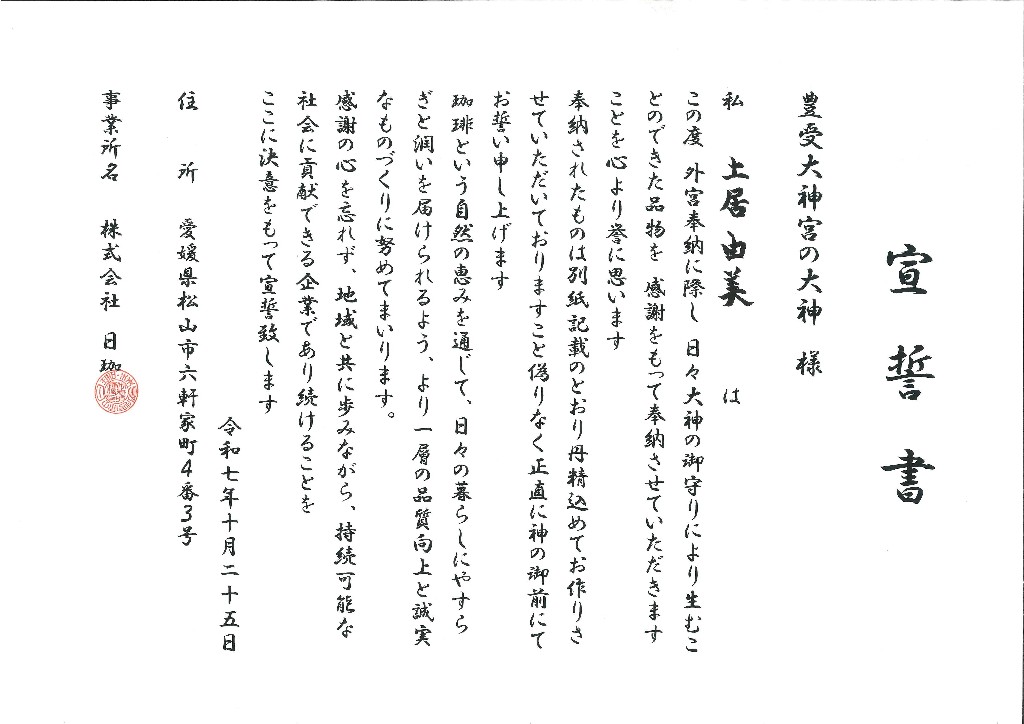 宣誓書
豊受大神宮の大神 様
私 土居由美 は
この度 外宮奉納に際し 日々大神の御守りにより生むこ
とのできた品物を 感謝をもって奉納させていただきます
ことを心より誉に思います
奉納されたものは別紙記載のとおり丹精込めてお作りさ
せていただいておりますこと偽りなく正直に神の御前にて
お誓い申し上げます
珈琲という自然の恵みを通じて、日々の暮らしにやすら
ぎと潤いを届けられるよう、より一層の品質向上と誠実
なものづくりに努めてまいります。
感謝の心を忘れず、地域と共に歩みながら、持続可能な
社会に貢献できる企業であり続けることを
ここに決意をもって宣誓致します
令和七年十月二十五日
住 所 愛媛県松山市六軒家町4番3号
事業所名 株式会社 日珈